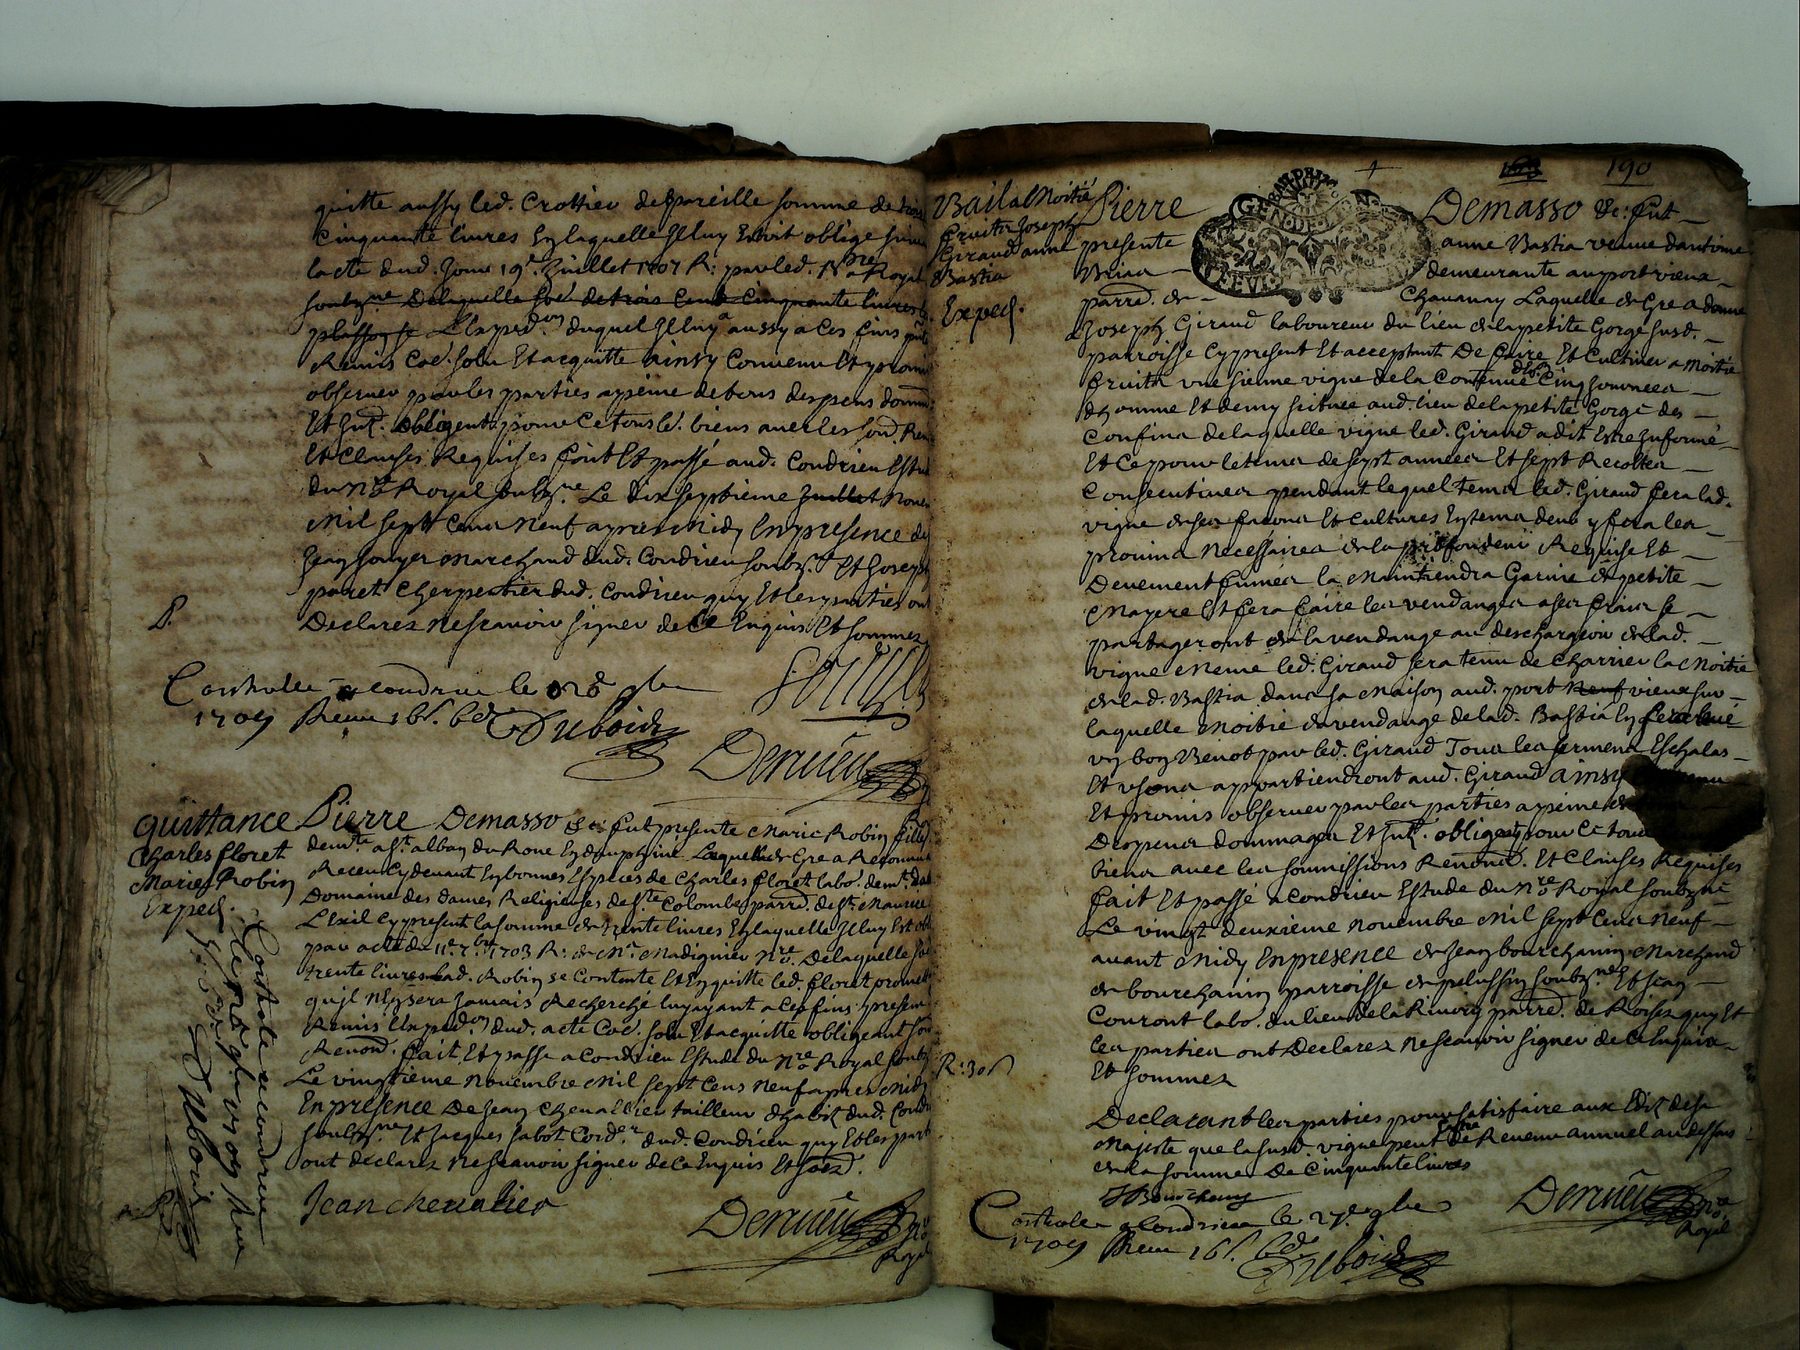 quitte aussy led. Crottier de pareille somme de trois
Cinquante livres En laquelle Il luy Estoit oblige
lacte dud. Jour 19e. Juillet 1707 R: par led. Nre Royal
soubzne De laquelle de trois Cent Cinquante livres
duquel Il luy a aussy a Ces fins
Remis solu Et acquitte ainsy Convenu Et promis
observer par les parties a peine de tous despens domm
Et Int. obligent pour Ce tous le. biens avec les soum. Ren
Et Clauses Requises fait Et passé aud. Condrieu Estude
du Nre Royal soubzne. Le dix septieme Juillet Nove
Mil sept Cens Neuf apres Midy En presence de
Jean marchand dud. Condrieu soubz. Et Joseph
paret Cherpentier dud. Condrieu quy Et les parties ont
Declarez Ne scavoir signer de Ce Enquis Et sommez
P.
Controlle a condrieu le 9bre
1709 Receu 16s. 6d
Dubois
Deruieu
quittance
Charles floret
Marie Robin
Exped.
Pierre Demasso &c: fut presente Marie Robin fille
demte. a St. alban du Rone En dauphine Laquelle de Gre a Reconnu
Receu Cy devant En bonnes Especes de Charles floret labo. demt. du
Domaine des dames Religieuses de Ste Colombe parre. de St. Maurice
L'Exil Cy present la somme de trente livres En laquelle Il luy Est
par acte du 11e. 7bre 1703 R: de Mr. Madiginier Nre. De laquelle
trente livres lad. Robin se Contente Et En quitte led. floret promet
qu'il N'En sera Jamais Recherché luy ayant a Ces fins presen
Remis L'Exped.on dud. acte solu Et acquitte obligeant
Renond. fait Et passé a Condrieu Estude du Nre Royal soubz
Le vingtieme Novembre Mil sept Cens Neuf apres Midy
En presence De Jean Chevallier tailleur d'habit dud. Condr
soubzne Et Jacques Sabot dud. Condrieu quy Et les part
ont declarez Ne scavoir signer de Ce Enquis Et
Controlle a condrieu
le 1709
Dubois
Jean chevalier
Deruieu Nre
Royal
190
GEN. DE LYON
Bail a Moitié
fruits Joseph
Giraud anne
Bastia
Exped.
Pierre Demasso &c: fut
presente anne Bastia veuve dantoine
demeurante au port vieux
parre. de Chavanay Laquelle de Gre a donne
a Joseph Giraud laboureur du lieu de la petite Gorge susd.
parroisse Cy present Et acceptant De faire Et Cultiver a Moitié
fruits une sienne vigne de la Contenue Cinq hommées
d'homme Et demy scituée aud. lieu de la petite Gorge des
Confins de laquelle vigne led. Giraud a dit Estre Informé
Et Ce pour le tems de sept années Et sept Recoltes
Consecutives pendant lequel tems led. Giraud fera lad.
vigne de ses facons Et Cultures En tems deus y fera les
provins Necessaires de la profondeur Requise Et
Deuement fumés la Maintiendra Garnie de petite
Mayere Et fera faire les vendanges a ses frais se
partageront de la vendange au deschargeoir de lad.
vigne Mesme led. Giraud sera tenu de Charrier la Moitié
de lad. Bastia dans sa Maison aud. port Neuf vieux sur
laquelle Moitié de vendange de lad. Bastia
un bon Benot par led. Giraud Tous les serments Eschalas
Et appartiendront aud. Giraud ainsy
Et promis observer par les parties a peine de
Despens dommages Et Int. obligent pour Ce tous
biens avec les soumissions Renond. Et Clauses Requises
fait Et passé a Condrieu Estude du Nre Royal soubzne
Le vingt deuxieme Novembre Mil sept Cens Neuf
avant Midy En presence de Jean bourchanin Marchand
de bourchanin parroisse de pelussin soubzne Et Jean
Couront labo. du lieu de la Rivory parre. de Roisey quy Et
les parties ont Declarez Ne scavoir signer de Ce Enquis
Et sommez
R: 30s
Declarant les parties pour satisfaire aux Edit de sa
Majesté que la susd. vigne peut estre de Revenu annuel au dessus
de la somme De Cinquante livres
Deruieu Nre
Royal
Controlle a Condrieu le 27e. 9bre
1709 Receu 16s. 6d.
Dubois